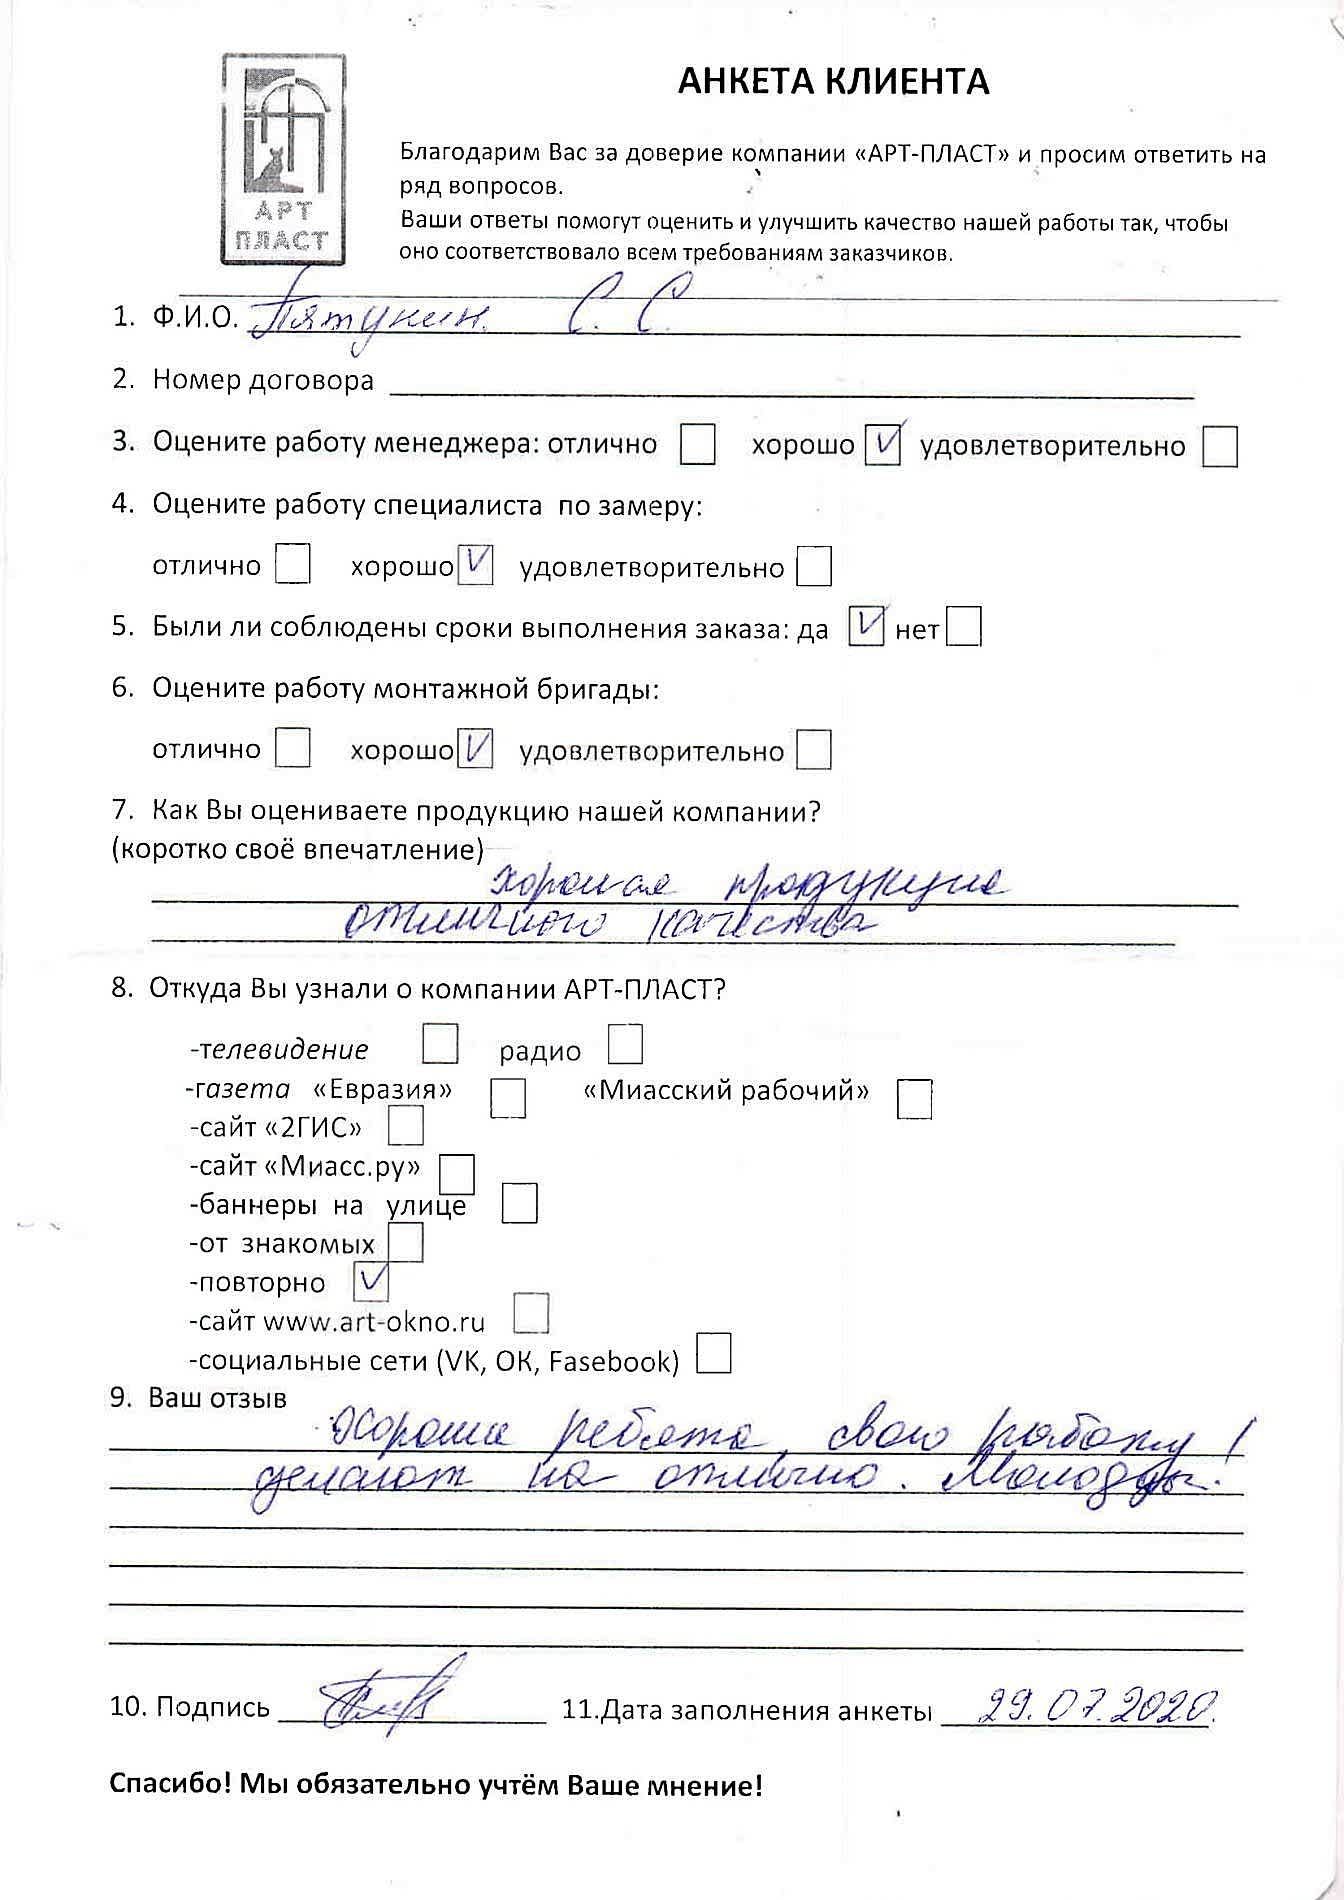 АРТ
ПЛАСТ
АНКЕТА КЛИЕНТА
Благодарим Вас за доверие компании «АРТ-ПЛАСТ» и просим ответить на
ряд вопросов.
Ваши ответы помогут оценить и улучшить качество нашей работы так, чтобы
оно соответствовало всем требованиям заказчиков.
1. Ф.И.О. Пятунин С. С.
2. Номер договора
3. Оцените работу менеджера: отлично хорошо V удовлетворительно
4. Оцените работу специалиста по замеру:
отлично хорошо V удовлетворительно
5. Были ли соблюдены сроки выполнения заказа: да V нет
6. Оцените работу монтажной бригады:
отлично хорошо V удовлетворительно
7. Как Вы оцениваете продукцию нашей компании?
(коротко своё впечатление)
хорошая продукция
отличного качества
8. Откуда Вы узнали о компании АРТ-ПЛАСТ?
-телевидение радио
-газета «Евразия» «Миасский рабочий»
-сайт «2ГИС»
-сайт «Миасс.ру»
-баннеры на улице
-от знакомых
-повторно V
-сайт www.art-okno.ru
-социальные сети (VK, ОК, Fasebook)
9. Ваш отзыв
Хорошие ребята, свою работу
делают на отлично. Молодцы!
10. Подпись 11.Дата заполнения анкеты 29.07.2020.
Спасибо! Мы обязательно учтём Ваше мнение!